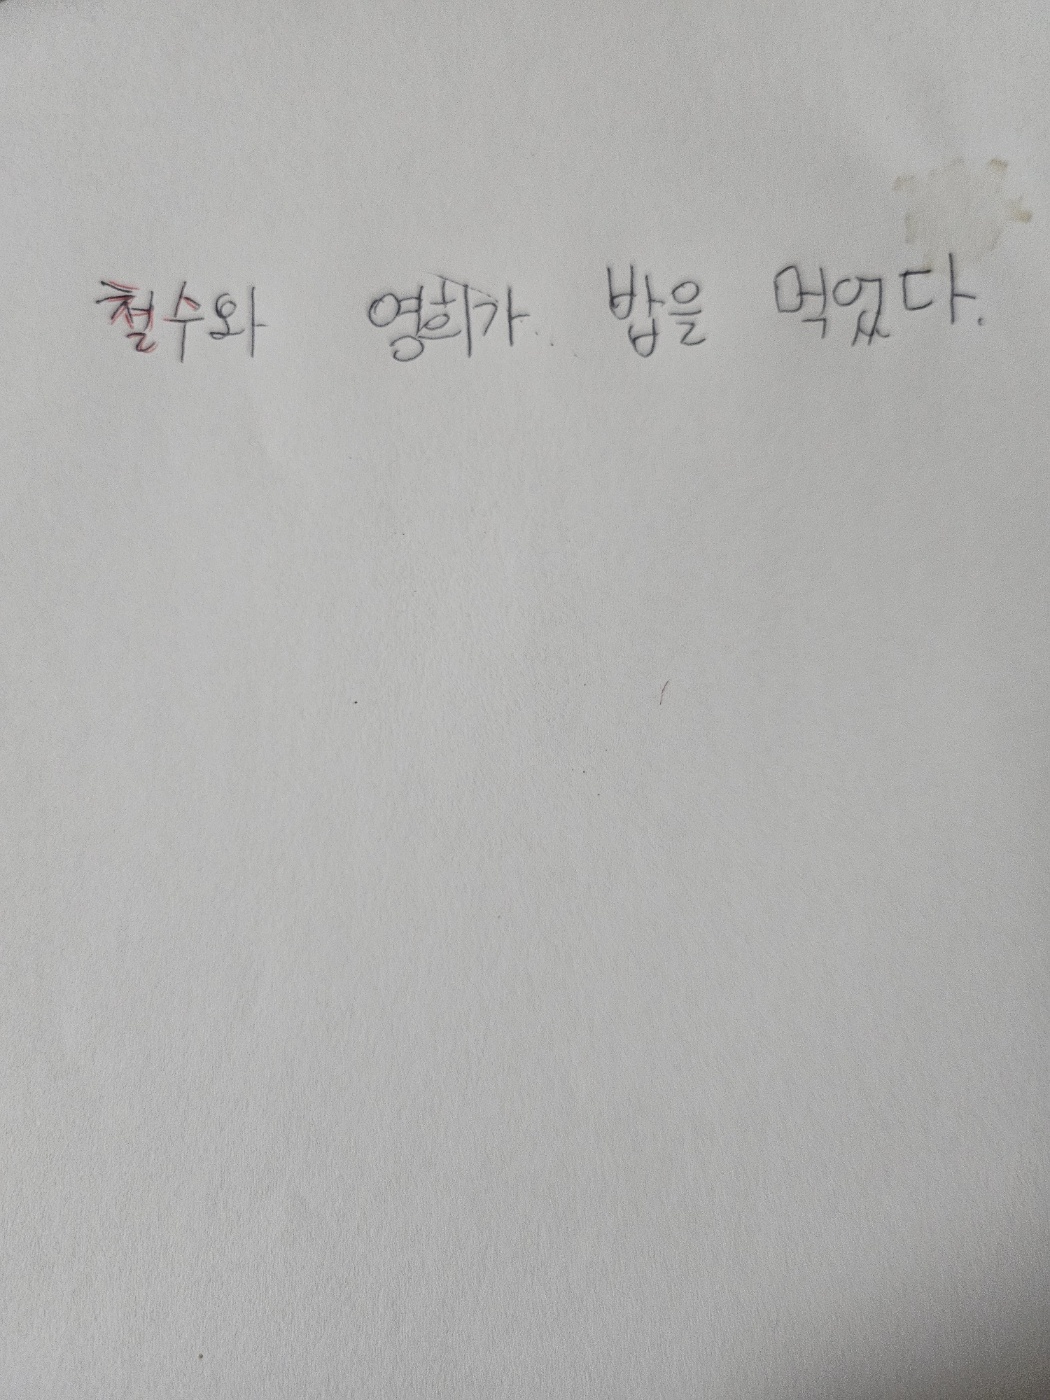 철수와 영희가 밥을 먹었다.